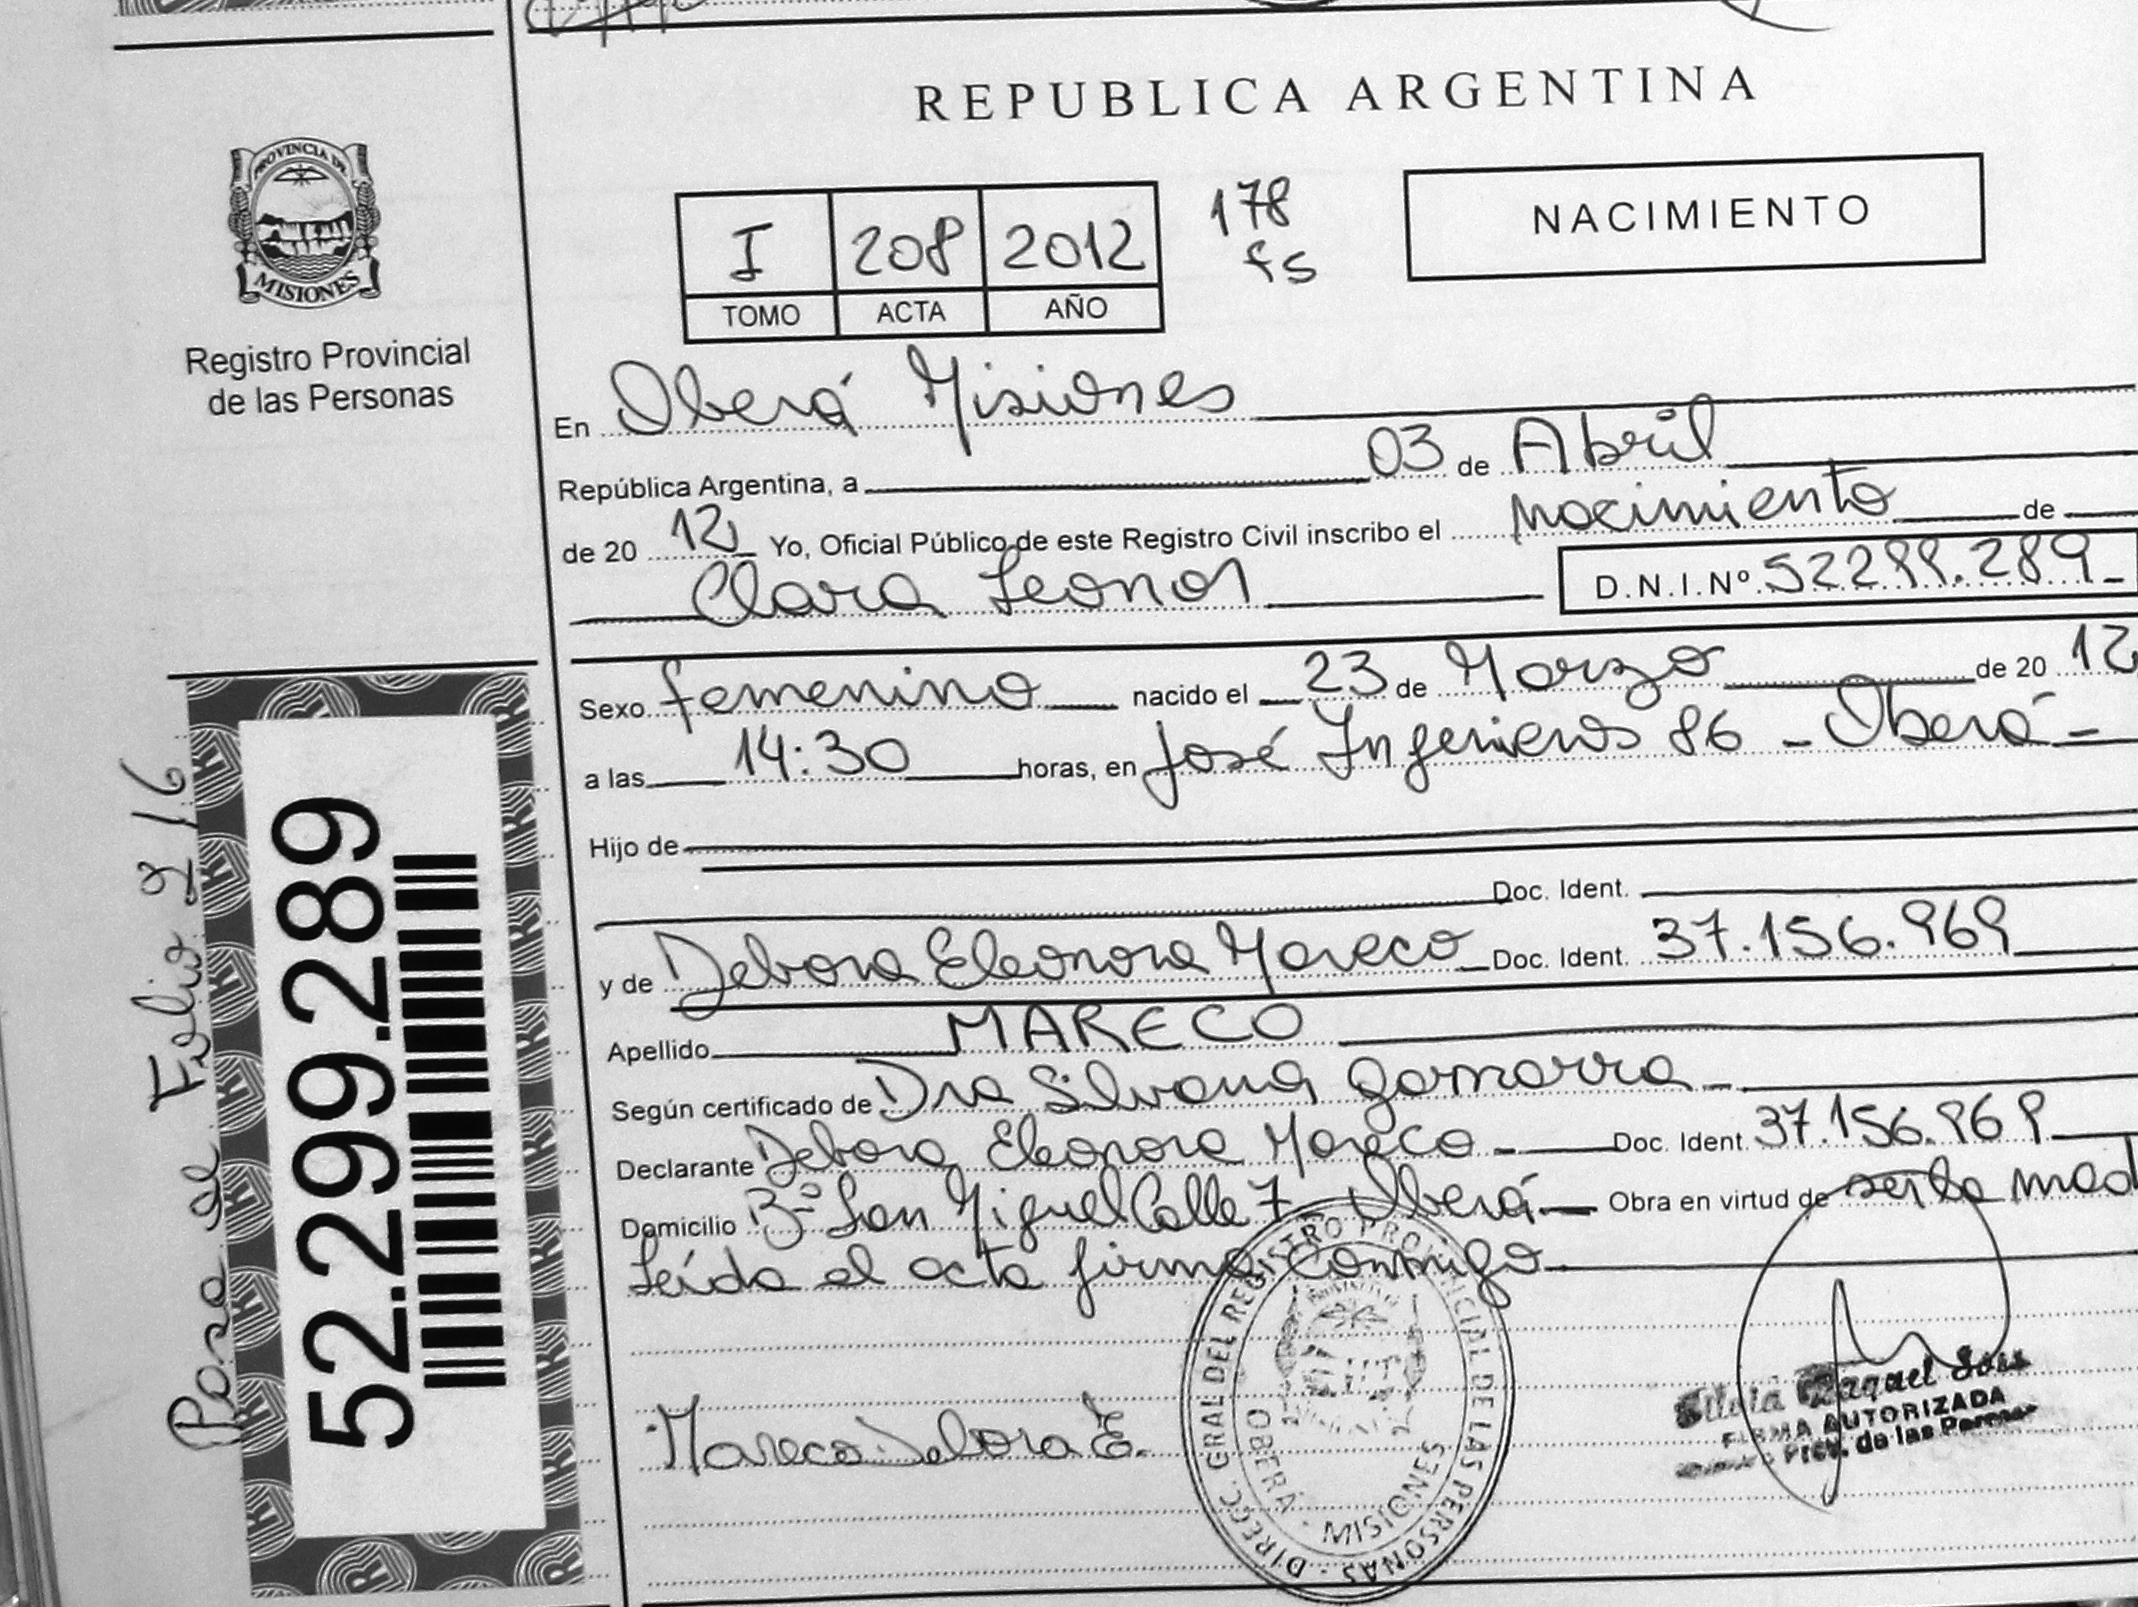 REPUBLICA ARGENTINA
PROVINCIA DE
MISIONES
Registro Provincial
de las Personas
I 208 2012
TOMO ACTA AÑO
178
fs
NACIMIENTO
En Oberá Misiones
República Argentina, a 03 de Abril
de 20 12 Yo, Oficial Público de este Registro Civil inscribo el nacimiento de
Clara Leonor D.N.I.Nº 52299.289
Sexo femenino nacido el 23 de Marzo de 20 12
a las 14:30 horas, en José Ingenieros 86 - Oberá -
Hijo de
Doc. Ident.
y de Debora Eleonora Mareco Doc. Ident. 37.156.969
Apellido MARECO
Según certificado de Dra Silvana Gamarra
Declarante Debora Eleonora Mareco Doc. Ident. 37.156.969
Domicilio Bº San Miguel Calle 7 Oberá Obra en virtud de ser la mad
Leída el acta firma conmigo
Mareco Debora E.
DIRECC. GRAL DEL REGISTRO PROVINCIAL DE LAS PERSONAS
OBERA - MISIONES
Silvia Raquel
FIRMA AUTORIZADA
Prov. de las Personas
52.299.289
Pasa al Folio 216